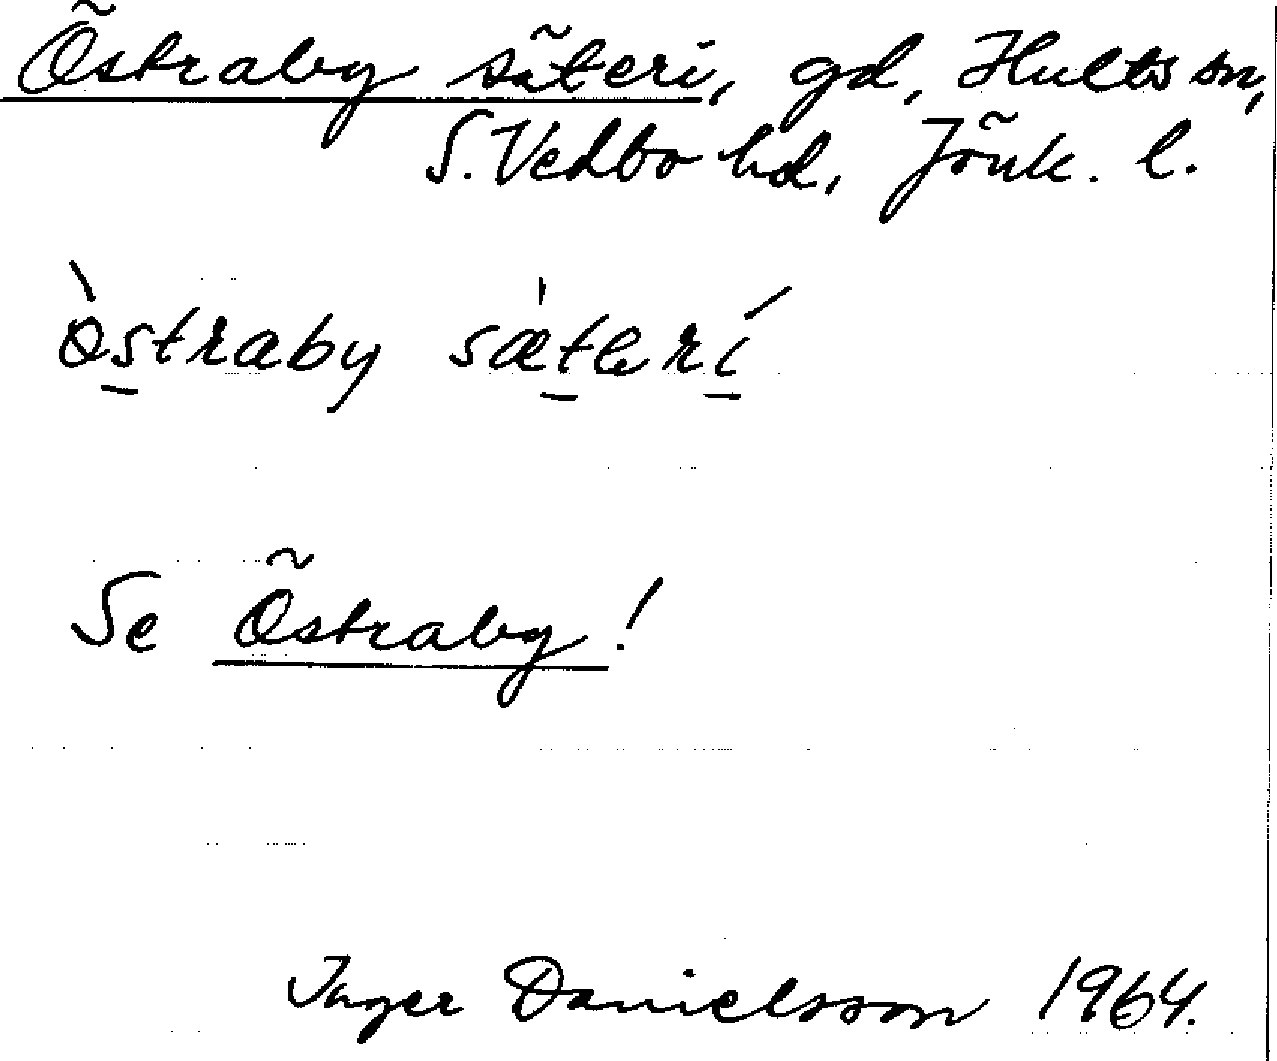 Östraby säteri, gd, Hults sn,
S. Vedbo hd, Jönk. l.
ò̀straby sæ̍terí
Se Östraby!
Inger Danielsson 1964.